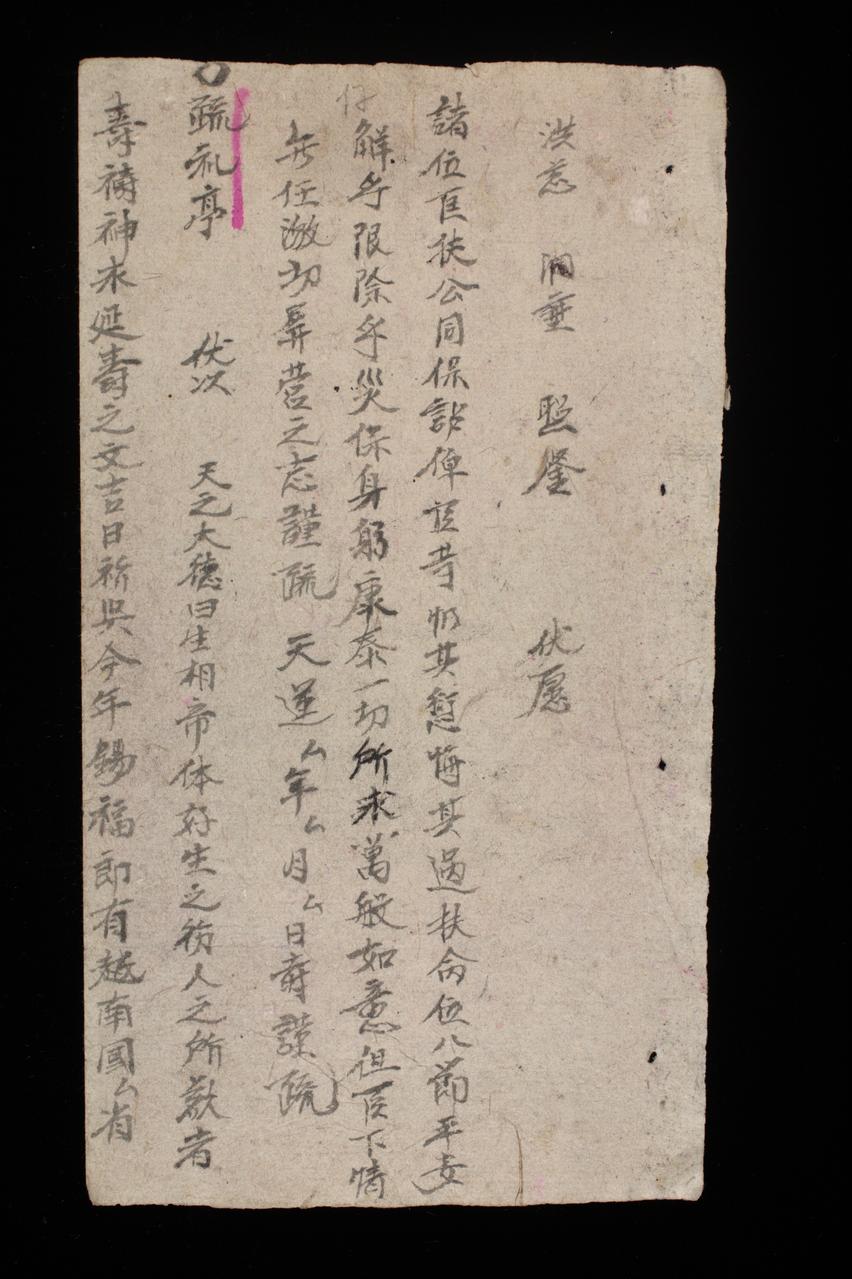 洪慈 洞垂 照鉴 伏愿
諸位臣扶公同保 俾 其愆悔其過扶命位八節平安
解乎限除乎災保身躬康泰一切所求萬般如意但臣下情
无任激切屏营之志謹疏 天運厶年厶月厶日斋謹疏
疏礼亭 伏次 天之大德曰生相帝体好生之 人之所 者
壽禱神求延壽之文吉日祈 今年錫福 即有越南國厶省